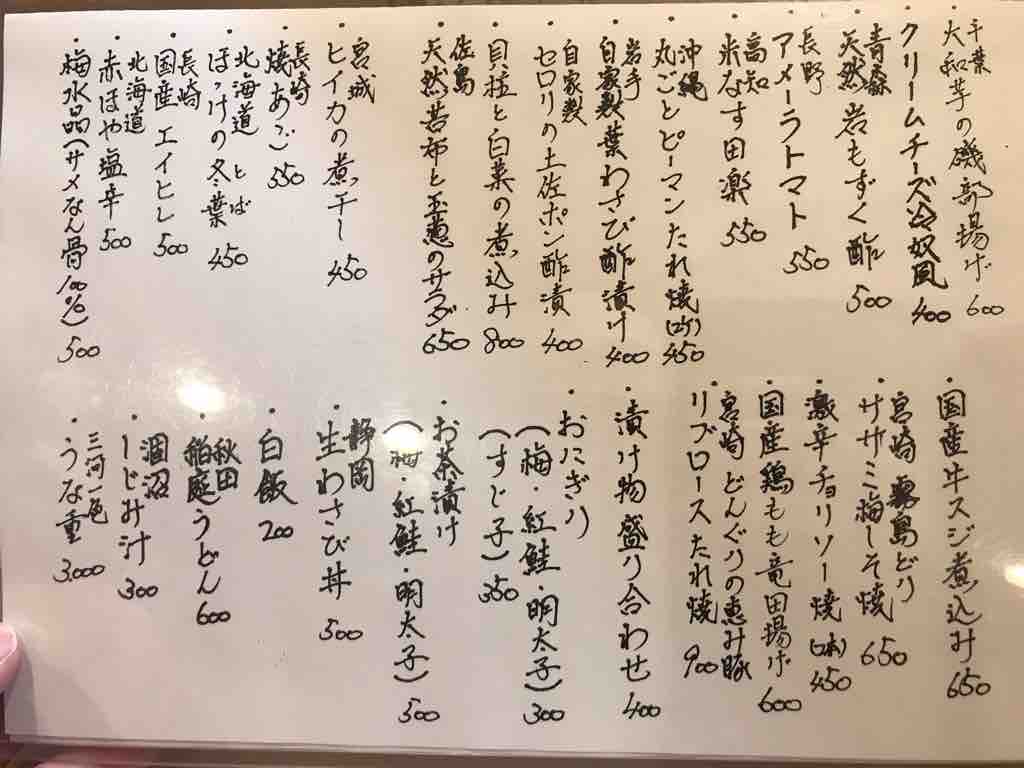 ・千葉
大和芋の磯部揚げ 600
・クリームチーズ冷奴風 400
・青森
天然岩もずく酢 500
・長野
アメーラトマト 550
・高知
米なす田楽 550
・沖縄
丸ごとピーマンたれ焼(2ヶ) 450
・岩手
自家製葉わさび酢漬け 400
・自家製
セロリの土佐ポン酢漬 400
・貝柱と白菜の煮込み 800
・佐島
天然若布と玉葱のサラダ 650
・宮城
ヒイカの煮干し 450
・長崎
焼あご 550
・北海道 とば
ほっけの冬葉 450
・長崎
国産エイヒレ 500
・北海道
赤ほや塩辛 500
・梅水晶(サメなん骨100%) 500
・国産牛スジ煮込み 650
・宮崎 霧島どり
ササミ梅しそ焼 650
・激辛チョリソー焼(2本) 450
・国産鶏もも竜田揚げ 600
・宮崎 どんぐりの恵み豚
リブロースたれ焼 900
・漬け物盛り合わせ 400
・おにぎり
(梅・紅鮭・明太子) 300
(すじ子) 350
・お茶漬け
(梅・紅鮭・明太子) 500
・静岡
生わさび丼 500
・白飯 200
・秋田
稲庭うどん 600
・涸沼
しじみ汁 300
・三河一色
うな重 3.000